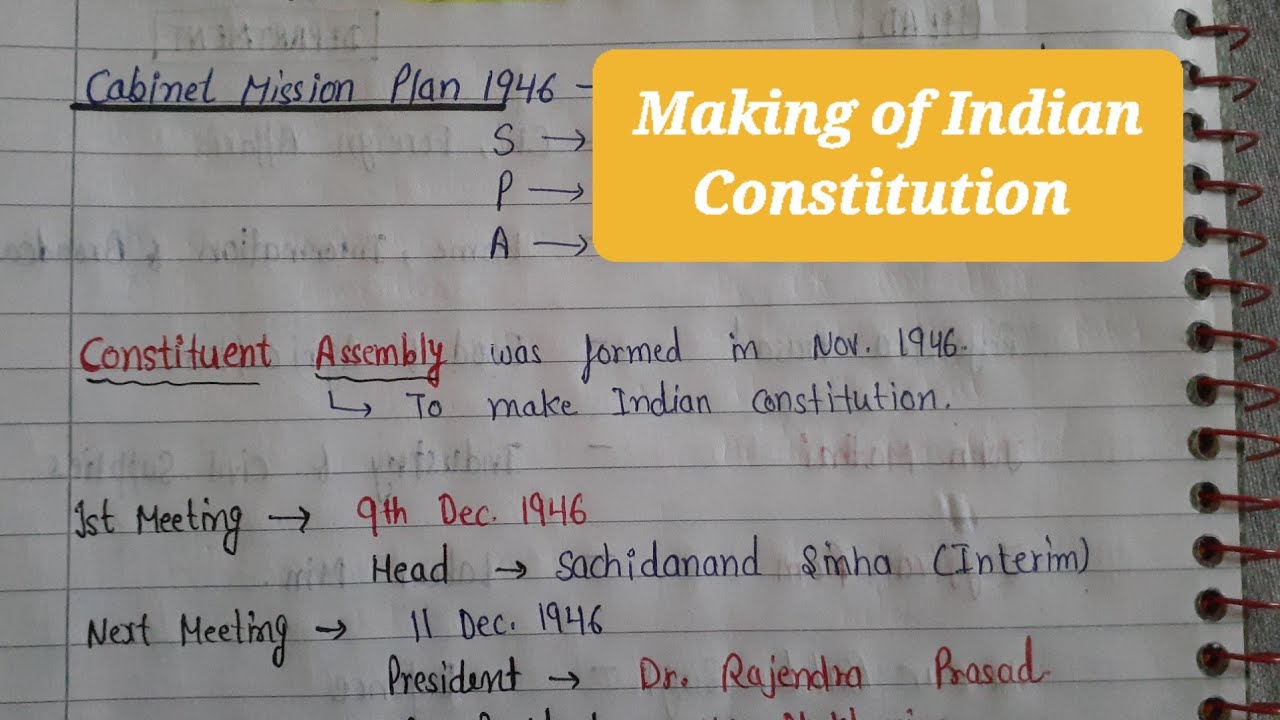 Cabinet Mission Plan 1946 -
S →
P →
A →
Making of Indian
Constitution
Constituent Assembly was formed in Nov. 1946.
↳ To make Indian constitution.
1st Meeting → 9th Dec. 1946
Head → Sachidanand Sinha (Interim)
Next Meeting → 11 Dec. 1946
President → Dr. Rajendra Prasad